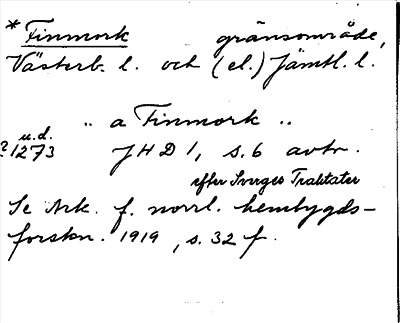 *Finmork gränsområde,
Västerb. l. och (el.) Jämtl. l.
" a Finmork "
u.d.
?1273 JHD 1, s. 6 avtr.
efter Sverges Traktater
Se Ark. f. norrl. hembygds-
forskn. 1919, s. 32 f.